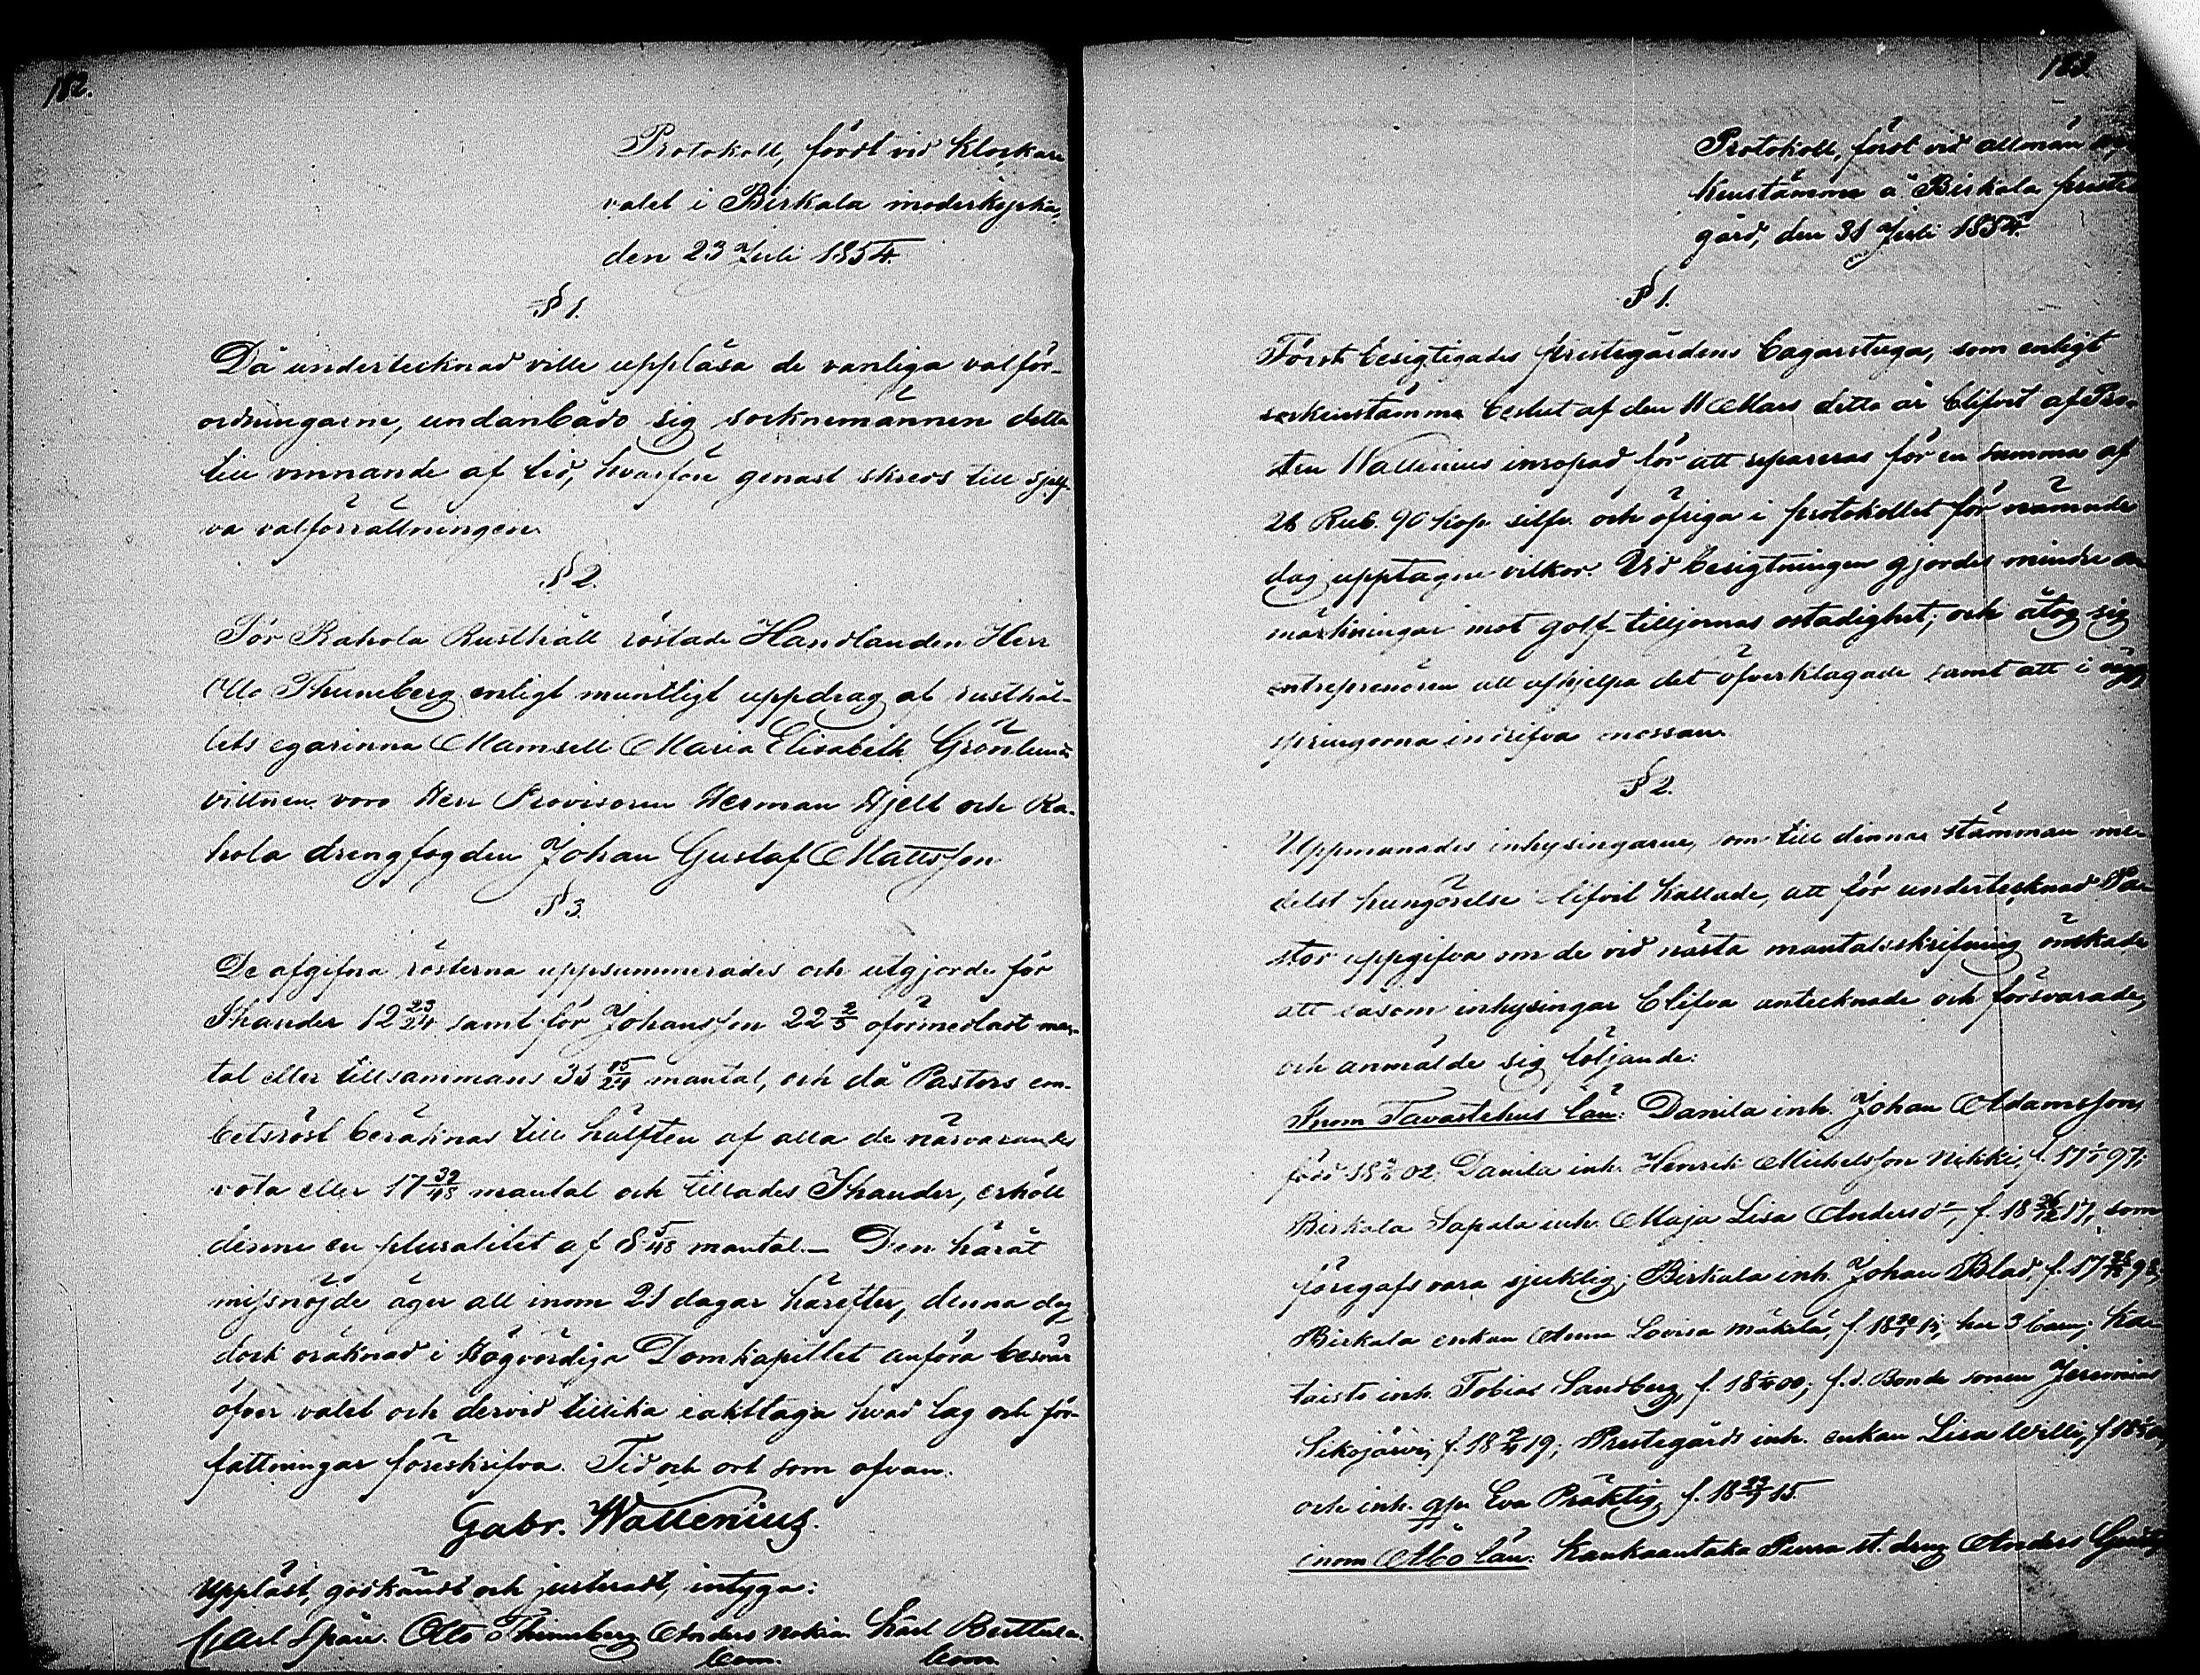 182.
Protokoll, fördt vid Klockare
valet i Birkala moderkyrka,
den 23 Juli 1854.
§ 1.
Då undertecknad ville uppläsa de vanliga valför-
ordningarne, undanbådo sig socknemännen detta
till vinnande af tid, hvarföre genast skreds till sjelf-
va valförrättningen.
§ 2.
För Rahola Rusthåll röstade Handlanden Herr
Otto Thuneberg enligt muntligt uppdrag af rusthål-
lets egarinna Mamsell Maria Elisabeth Grönlund
vittnen voro Herr Provisoren Herman Hjelt och Ra-
hola drengfogden Johan Gustaf Mattsson
§ 3.
De afgifna rösterna uppsummerades och utgjorde för
Thauder 12 23/24 samt för Johansson 22 2/3 oförmedladt man-
tal eller tillsammans 35 15/24 mantal, och då Pastors em-
betsröst beräknas till hälften af alla de närvarandes
vota eller 17 39/48 mantal och tillades Thauder, erhöll
denne en pluralitet af 8 5/48 mantal. — Den häråt
missnöjde äger att inom 21 dagar härefter, denna dag
dock oräknad i Högvördiga Domkapitlet anföra besvär
öfver valet och dervid tillika iakttaga hvad lag och för-
fattningar föreskrifva. Tid och ort som ofvan.
Gabr. Wallenius.
Uppläst, godkändt och justeradt, intyga:
Carl Spåre. Otto Thuneberg Anders Nokia Karl Berttula
bom. bom.
183.
Protokoll, fördt vid allmän
kenstämma å Birkala preste
gård, den 31 Juli 1854.
§ 1.
Först besigtigades prestegårdens bagarstuga, som enligt
sockenstämma beslut af den 11 Mars detta år blifvit af Pro-
sten Wallenius inropad för att repareras för en summa af
28 Rub. 90 kop. silfv. och öfriga i protokollet för nämnde
dag upptagne vilkor. Vid besigtningen gjordes mindre an
märkningar mot golf-tilljornas ostadighet; och åtog sig
entreprenören att afhjelpa det öfverklagade samt att i
springorna indrifva mossan.
§ 2.
Uppmanades inhysingarne, som till denna stämman me-
delst kungörelse blifvit kallade, att för undertecknad Pa-
stor uppgifva om de vid nästa mantalsskrifning önskade
att såsom inhysingar blifva antecknade och försvarade,
och anmälde sig följande:
Inom Tavastehus län: Danila inh. Johan Adamsson,
född 02. Danila inh. Henrik Michelsson Nikki, f. 97;
Birkala Sapala inh. Maja Lisa Andersdr, f. 18 26/12 17, som
föregafs vara sjuklig; Birkala inh. Johan Blad, f.
Birkala enkan Anna Lovisa Mäkelä, f. har 3 barn; Kar-
taisto inh. Tobias Sandberg, f. 00; f.d. Bonde sonen Jeremias
Sikojärvi, f. 19; Prestegårds inh. enkan Lisa Willi, f.
och inh. qp. Eva Präktig, f. 15.
inom Åbo län: Kankaantaka Purra st. dreng Anders